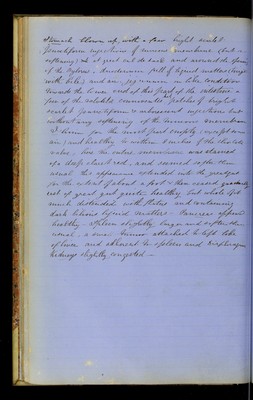 Stomach blown up, with a few bright scarlet
Punctiform injections of mucous membrane (but no
softening) at great cul de sac and around the opening
of the pylorus. Duodenum full of liquid matter (tinged
with bile) and
towards the lower end of this part of the intestine a
few of the solitary patches of bright
scarlet Punctiform & arborescent injections but
without any softening of the mucous membrane
for the most part empty (except air
in) and healthy to within 3 inches of the ileo colic
valve, here the entire membrane was
of a deep claret red, and seemed softer than
usual this appearance extended into the great gut
for the extent of about a foot & then ceased gradually
rest of great gut quite healthy but whole gut
much distended with flatus and containing
dark bilious liquid matters. Pancreas appeared
healthy. Spleen slightly larger and softer than
usual. a small tumor attached to left lobe
of liver and adherent to spleen and diaphragm
Kidneys slightly congested —